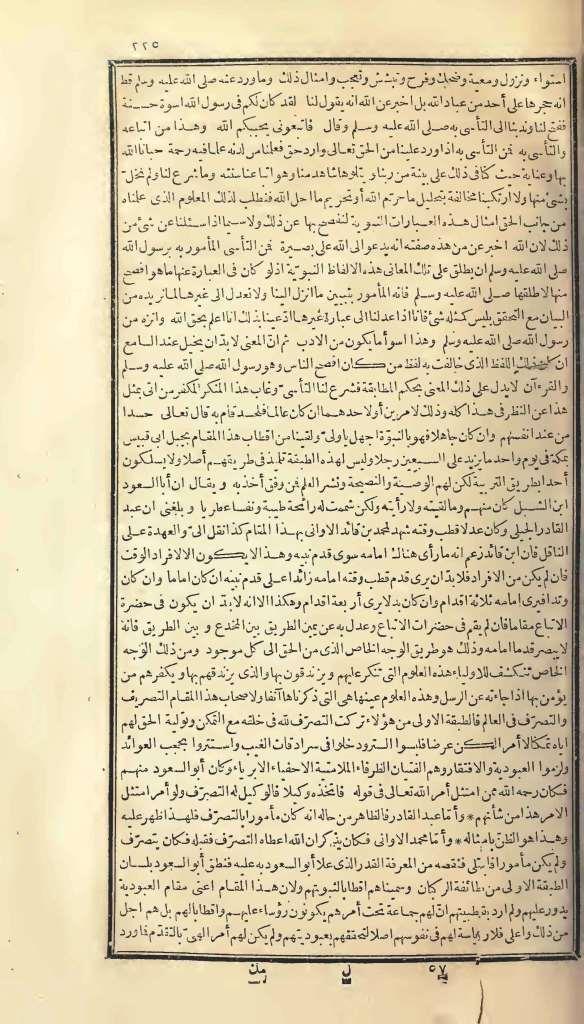 ٢٢٥
استواء ونزول ومعية وضحك وفرح وتبشش وتعجب وامثال ذلك وماورد عنه صلى الله عليه وسلم قط
انه حجرها على أحد من عباد الله بل اخبر عن الله انه يقول لنا لقد كان لكم فى رسول الله اسوة حسنة
ففتح لنا وندبنا الى التأسى به صلى الله عليه وسلم وقال فاتبعونى يحببكم الله وهذا من اتباعه
والتأسى به فمن التأسى به اذا ورد علينا من الحق تعالى وارد حق فعلنا من لدنه علما فيه رحمة حبانا الله
بها وعناية حيث كنا فى ذلك على بينة من ربنا ويتلوها شاهد منا وهو اتباعنا سنته وما شرع لنا ولم نخل
بشئ منها ولا ارتكبنا مخالفة بتحليل ما حرم الله أو تحريم ما احل الله فنطلب لذلك المعلوم الذى علمناه
من جانب الحق امثال هذه العبارات النبوية لنفصح بها عن ذلك ولا سيما اذا سئلنا عن شئ من
ذلك لان الله اخبر عن من هذه صفته انه يدعو الى الله على بصيرة فمن التأسى المأمور به برسول الله
صلى الله عليه وسلم ان يطلق على تلك المعانى هذه الالفاظ النبوية اذ لو كان فى العبارة عنها ما هو افصح
منها لاطلقها صلى الله عليه وسلم فانه المأمور بتبيين ما انزل الينا ولا نعدل الى غيرها لما نريده من
البيان مع التحقق بليس كمثله شئ فانا اذا عدلنا الى عبارة غيرها ادعينا بذلك انا اعلم بحق الله وانزه من
رسول الله صلى الله عليه وسلم وهذا اسوأ ما يكون من الادب ثم ان المعنى لابد ان يختل عند السامع
ان كان ذلك اللفظ الذى خالفت به لفظ من كان افصح الناس وهو رسول الله صلى الله عليه وسلم
والقرءآن لا يدل على ذلك المعنى بحكم المطابقة فشرع لنا التأسى وغاب هذا المنكر المكفر من اتى بمثل
هذا عن النظر فى هذا كله وذلك لامرين أو لاحدهما ان كان عالما فلحسد قام به قال تعالى حسدا
من عند انفسهم وان كان جاهلا فهو بالنبوة اجهل يا ولى ولقينا من اقطاب هذا المقام بجبل ابى قبيس
بمكة فى يوم واحد ما يزيد على السبعين رجلا وليس لهذه الطبقة تلميذ فى طريقتهم أصلا ولا يسلكون
أحدا بطريق التربية لكن لهم الوصية والنصيحة ونشر العلم فمن وفق أخذ به ويقال ان أبا السعود
ابن الشبل كان منهم وما لقيته ولا رأيته ولكن شممت له رائحة طيبة ونفسا عطريا وبلغنى ان عبد
القادر الجيلى وكان عدلا قطب وقته شهد لمحمد بن قائد الاوانى بهذا المقام كذا نقل الى والعهدة على
الناقل فان ابن قائد زعم انه ما رأى هناك امامه سوى قدم نبيه وهذا لا يكون الا لافراد الوقت
فان لم يكن من الافراد فلابد ان يرى قدم قطب وقته امامه زائدا على قدم نبيه ان كان اماما وان كان
وتدا فيرى امامه ثلاثة اقدام وان كان بدلا يرى أربعة اقدام وهكذا الا انه لابد ان يكون فى حضرة
الاتباع مقاما فان لم يقم فى حضرات الاتباع وعدل به عن يمين الطريق بين المخدع وبين الطريق فانه
لا يبصر قدما امامه وذلك هو طريق الوجه الخاص الذى من الحق الى كل موجود ومن ذلك الوجه
الخاص تنكشف للاولياء هذه العلوم التى تنكر عليهم ويزندقون بها والذى يزندقهم بها ويكفرهم من
يؤمن بها اذا جاءته عن الرسل وهذه العلوم عينها هى التى ذكرناها آنفا ولاصحاب هذا المقام التصريف
والتصرف فى العالم فالطبقة الاولى من هؤلاء تركت التصرف لله فى خلقه مع التمكن وتولية الحق لهم
اياه تمكنا لا أمرا لكن عرضا فلبسوا الستر ودخلوا فى سرادقات الغيب واستتروا بحجب العوائد
ولزموا العبودية والافتقار وهم الفتيان الظرفاء الملامتية الاخفياء الابرياء وكان أبو السعود منهم
فكان رحمه الله ممن امتثل أمر الله تعالى فى قوله فاتخذه وكيلا فالوكيل له التصرف ولو أمر امتثل
الامر هذا من شأنهم * وأما عبد القادر فالظاهر من حاله انه كان مأمورا بالتصرف فلهذا ظهر عليه
وهذا هو الظن بامثاله * وأما محمد الاوانى فكان يذكر ان الله اعطاه التصرف فقبله فكان يتصرف
ولم يكن مأمورا فابتلى فنقصه من المعرفة القدر الذى علا أبو السعود به عليه فنطق أبو السعود بلسان
الطبقة الاولى من طائفة الركبان وسميناهم اقطابا لثبوتهم ولان هذا المقام اعنى مقام العبودية
يدور عليهم ولم ارد بقطبيتهم ان لهم جماعة تحت أمرهم يكونون رؤساء عليهم واقطابا لهم بل هم اجل
من ذلك واعلى فلا رياسة لهم فى نفوسهم اصلا لتحققهم بعبوديتهم ولم يكن لهم أمر الهى بالتقدم فما ورد
٥٧ ل مك